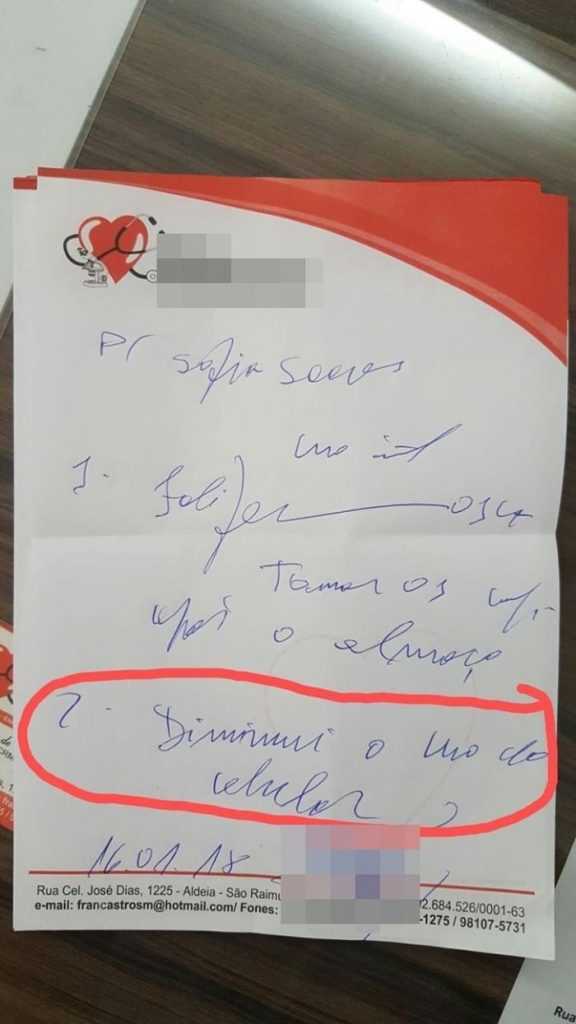 P/ Sofia Soares
uso int
1. Folifer 01 cx
Tomar 01 cp.
após o almoço
2. Diminuir o uso do
celular
16.01.18
Rua Cel. José Dias, 1225 - Aldeia - São Raimu 02.684.526/0001-63
e-mail: francastrosm@hotmail.com/ Fones: -1275 / 98107-5731
Rua